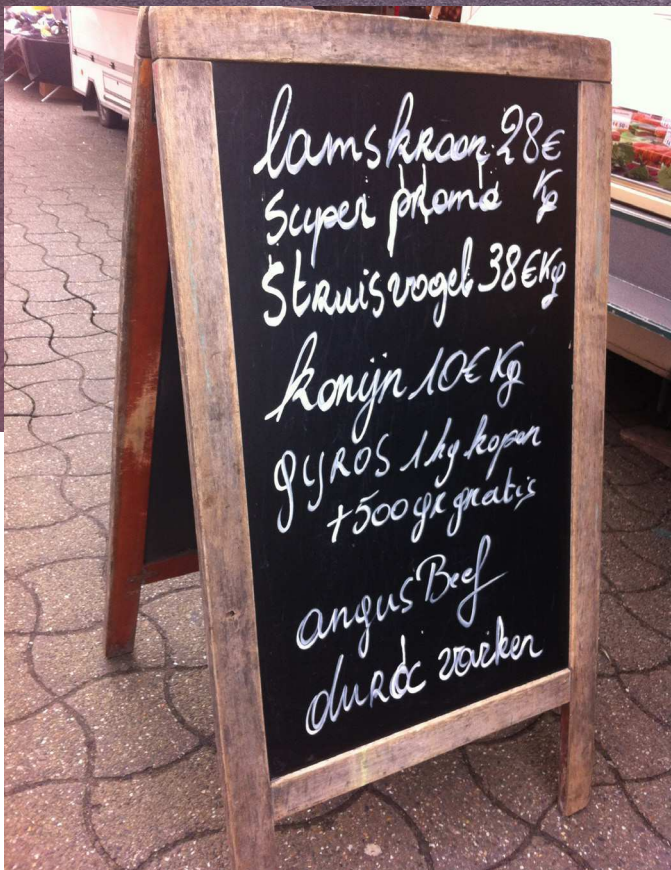 lamskroon 28€
super promo kg
struisvogel 38€kg
konijn 10€ kg
gyros 1kg kopen
+500gr gratis
angus Beef
duroc varken